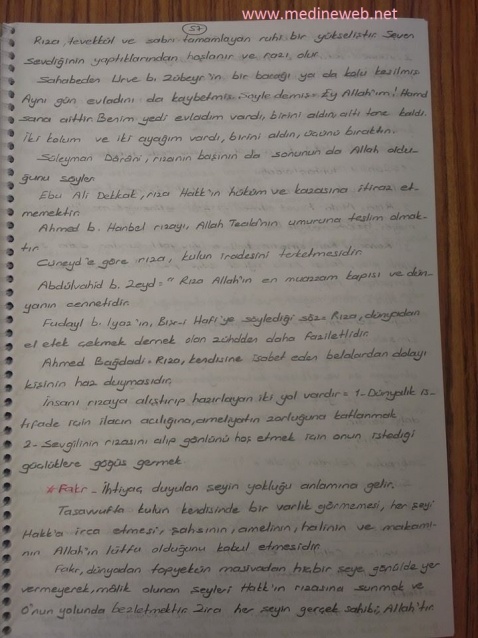 www.medineweb.net
57
Rıza, tevekkül ve sabrı tamamlayan ruhi bir yükseliştir. Seven
sevdiğinin yaptıklarından hoşlanır ve razı olur.
Sahabeden Urve b. Zübeyr'in bir bacağı ya da kolu kesilmiş.
Aynı gün evladını da kaybetmiş şöyle demiş= Ey Allah'ım! Hamd
sana aittir. Benim yedi evladım vardı, birini aldın, altı tane kaldı.
İki kolum ve iki ayağım vardı, birini aldın, üçünü bıraktın.
Süleyman Dârâni, rızanın başının da sonunun da Allah oldu-
ğunu söyler.
Ebu Ali Dekkak, rıza Hakk'ın hüküm ve kazasına itiraz et-
memektir.
Ahmed b. Hanbel rızayı, Allah Teala'nın umuruna teslim olmak-
tır.
Cüneyd'e göre rıza, kulun iradesini terketmesidir.
Abdülvahid b. Zeyd= " Rıza Allah'ın en muazzam kapısı ve dün-
yanın cennetidir.
Fudayl b. Iyaz'ın, Bişr-i Hafi'ye söylediği söz= Rıza, dünyadan
el etek çekmek demek olan zühdden daha faziletlidir.
Ahmed Bağdadi= Rıza, kendisine isabet eden belalardan dolayı
kişinin haz duymasıdır.
İnsanı rızaya alıştırıp hazırlayan iki yol vardır= 1- Dünyalık is-
tifade için ilacın acılığına, ameliyatın zorluğuna katlanmak
2- Sevgilinin rızasını alıp gönlünü hoş etmek için onun istediği
güçlüklere göğüs germek.
* Fakr - İhtiyaç duyulan şeyin yokluğu anlamına gelir.
Tasavvufta kulun kendisinde bir varlık görmemesi, her şeyi
Hakk'a irca etmesi, şahsının, amelinin, halinin ve makamı-
nın Allah'ın lütfu olduğunu kabul etmesidir.
Fakr, dünyadan topyekün masivadan hiçbir şeye gönülde yer
vermeyerek, mâlik olunan şeyleri Hakk'ın rızasına sunmak ve
O'nun yolunda bezletmektir. Zira her şeyin gerçek sahibi, Allah'tır.